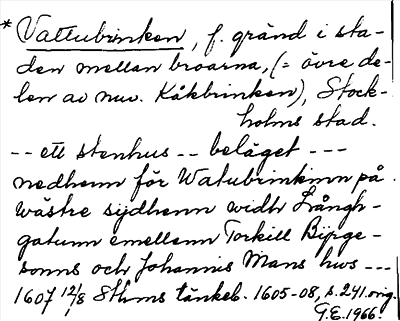 * Vattubrinken, f. gränd i sta-
den mellan broarna, (= övre de-
len av nuv. Kåkbrinken), Stock-
holms stad.
-- ett stenhus -- beläget ---
nedhenn för Watubrinkinn på
wästre sijdhenn widh Långh-
gatunn emellenn Torkill Birge-
sonns och Johannis Mans hws ---
1607 12/8 Sthms tänkeb. 1605-08, s. 241. orig.
G.E. 1966.